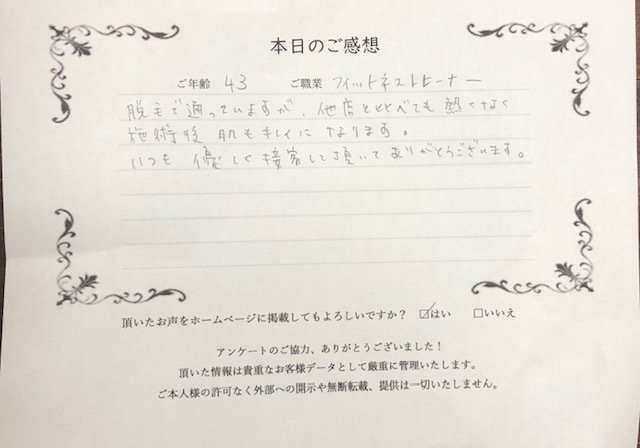 本日のご感想
ご年齢 43 ご職業 フィットネストレーナー
脱毛で通っていますが、他店と比べても熱くなく
施術後 肌もキレイになります。
いつも 優しく接客して頂いてありがとうございます。
頂いたお声をホームページに掲載してもよろしいですか? ☑はい □いいえ
アンケートのご協力、ありがとうございました!
頂いた情報は貴重なお客様データとして厳重に管理いたします。
ご本人様の許可なく外部への開示や無断転載、提供は一切いたしません。